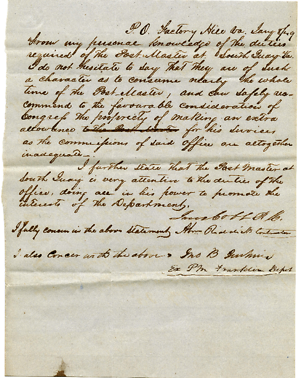 P.O. Factory Hill Va. Jany
From my personal knowledge of the duties
required of the Post Master at South Quay Va
I do not hesitate to say that they are of such
a character as to consume nearly the whole
time of the Post Master, and can safely re-
commend to the favorable consideration of
Congress the propriety of making an extra
allowance for his services
as the commissions of said Office are altogether
inadequate.
I further state that the Post Master at
South Quay is very attentive to the duties of the
office, doing all in his power to promote the
interests of the Department.
Cobb P.M.
I fully concur in the above statement
I also concur with the above Jno B
Ex P.M. Franklin Depot